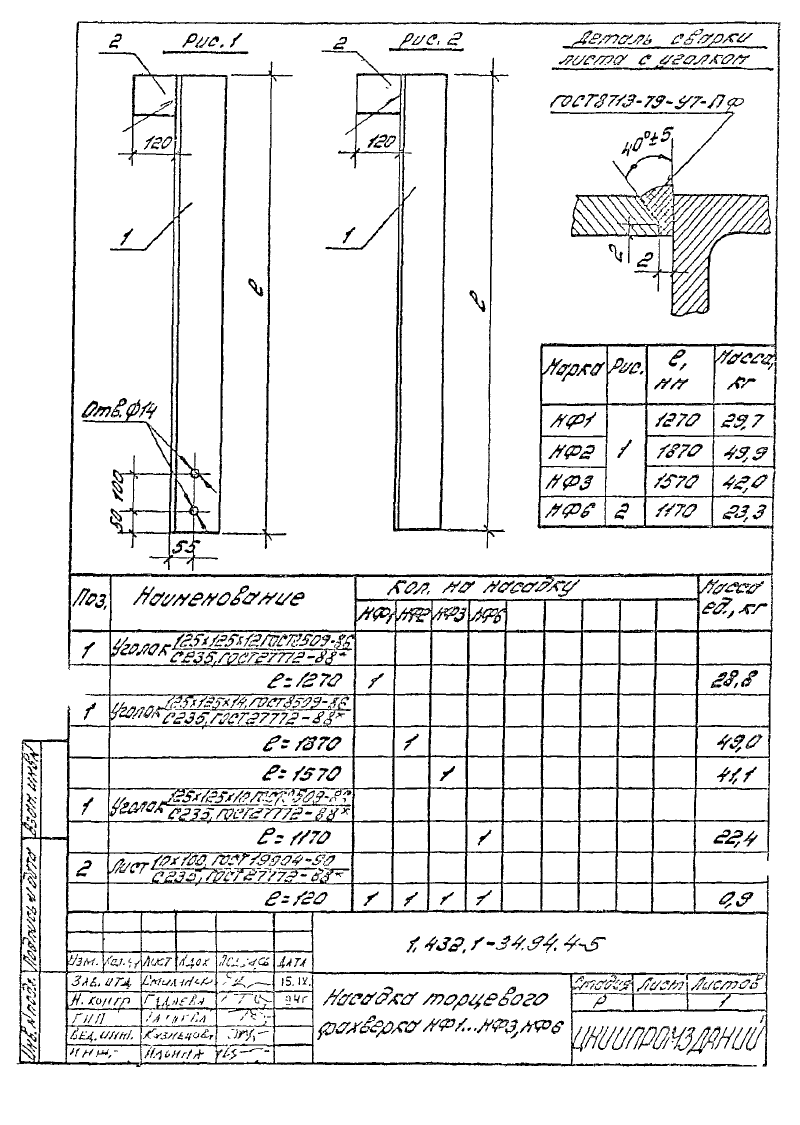 2 Рис. 1
2 Рис. 2
Деталь сварки
листа с уголком
ГОСТ 8713-79-У7-ПФ
40°±5
120
120
1
1
ℓ
ℓ
2
2
Отв. ф14
100
50
55
Марка Рис. ℓ, мм Масса, кг
НФ1 1 1270 29,7
НФ2 1870 49,9
НФ3 1570 42,0
НФ6 2 1170 23,3
Поз. Наименование Кол. на насадку Масса ед., кг
НФ1 НФ2 НФ3 НФ6
1 Уголок 125х125х12, ГОСТ 8509-86
С235, ГОСТ 27772-88*
ℓ=1270 1 28,8
1 Уголок 125х125х14, ГОСТ 8509-86
С235, ГОСТ 27772-88*
ℓ=1870 1 49,0
ℓ=1570 1 41,1
1 Уголок 125х125х10, ГОСТ 8509-86
С235, ГОСТ 27772-88*
ℓ=1170 1 22,4
2 Лист 10х100, ГОСТ 19904-90
С235, ГОСТ 27772-88*
ℓ=120 1 1 1 1 0,9
Взам. инв. №
Подпись и дата
Инв. № подл.
1.432.1-34.94.4-5
Изм. Кол.уч Лист №док Подпись Дата
Зав. отд. 15.IX.
Н. контр. Гадаева 94г
ГИП
Вед. инж. Кузнецова
Инж. Ильина
Насадка торцевого
фахверка НФ1...НФ3, НФ6
Стадия Лист Листов
Р 1
ЦНИИПРОМЗДАНИЙ